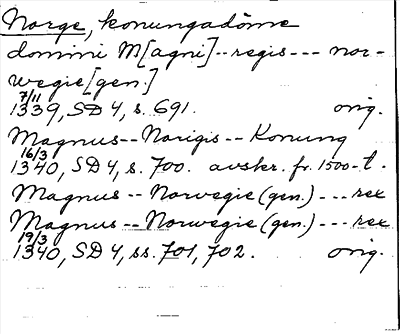 Norge, konungadöme
domini M[agni]--regis--- nor-
wegie[gen.]
7/11
1339, SD 4, s. 691. orig.
Magnus--Norigis--Konung
16/3
1340, SD 4, s. 700. avskr. fr. 1500-t.
Magnus--Norwegie (gen.)---rex
Magnus--Norwegie (gen.)---rex
19/3
1340, SD 4, ss. 701, 702. orig.